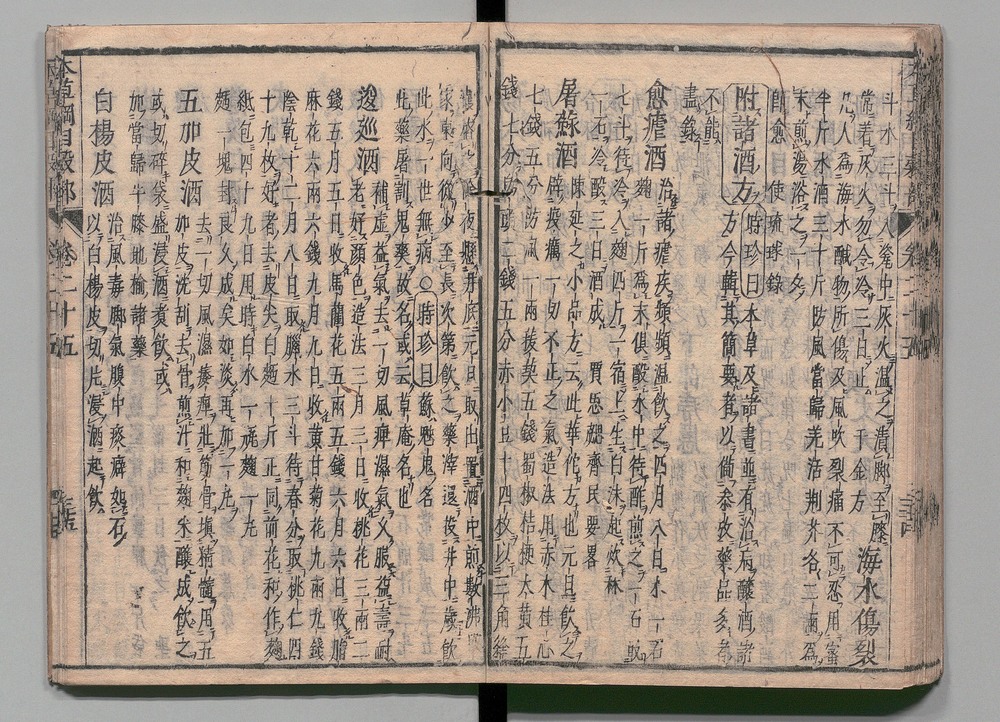 斗水三斗入瓮中灰火溫之漬脚至膝
常着灰火勿令冷三日止 千金方 海水傷裂
凡人為海水鹹物所傷及風吹裂痛不可忍用蜜
半斤水酒三十斤防風當歸羌活荆芥各二兩為
末煎湯浴之一夕
即愈 目 使琉球錄
附諸酒方 時珍曰本草及諸書並有治病釀酒諸
方今輯其簡要者以備參攷藥品多者
不能
盡錄
愈瘧酒 治諸瘧疾頻頻溫飲之四月八日水一石
麴一斤為末俱酘水中待酢煎之一石取
七斗待冷入麴四斤一宿上生白沫起炊秫
一石冷酘三日酒成 賈思勰齊民要畧
屠蘇酒 陳延之小品方云此華佗方也元旦飲之
辟疫癘一切不正之氣造法用赤木桂心
七錢五分防風一兩菝葜五錢蜀椒桔梗大黃五
錢七分烏頭二錢五分赤小豆十四枚以三角絳
囊盛之除夜懸井底元旦取出置酒中煎數沸舉
家東向從少至長次第飲之藥滓還投井中歲飲
此水一世無病○時珍曰蘇魁鬼名
此藥屠割鬼爽故名或云草庵名也
逡巡酒 補虛益氣去一切風痺濕氣久服益壽耐
老好顏色造法三月三日收桃花三兩三
錢五月五日收馬蘭花五兩五錢六月六日收脂
麻花六兩六錢九月九日收黃甘菊花九兩九錢
陰乾十二月八日取臘水三斗待春分取桃仁四
十九枚好者去皮尖白麵十斤正同前花和作麴
紙包四十九日用時白水一瓶麴一丸
麵一塊封良久成矣如淡再加一丸
五加皮酒 去一切風濕痿痺壯筋骨填精髓用五
加皮洗刮去骨煎汁和麴米釀成飲之
或切碎袋盛浸酒煮飲或
加當歸牛膝地榆諸藥
白楊皮酒 治風毒脚氣腹中痰癖如石
以白楊皮切片浸酒起飲
本草綱目穀部 卷二十五